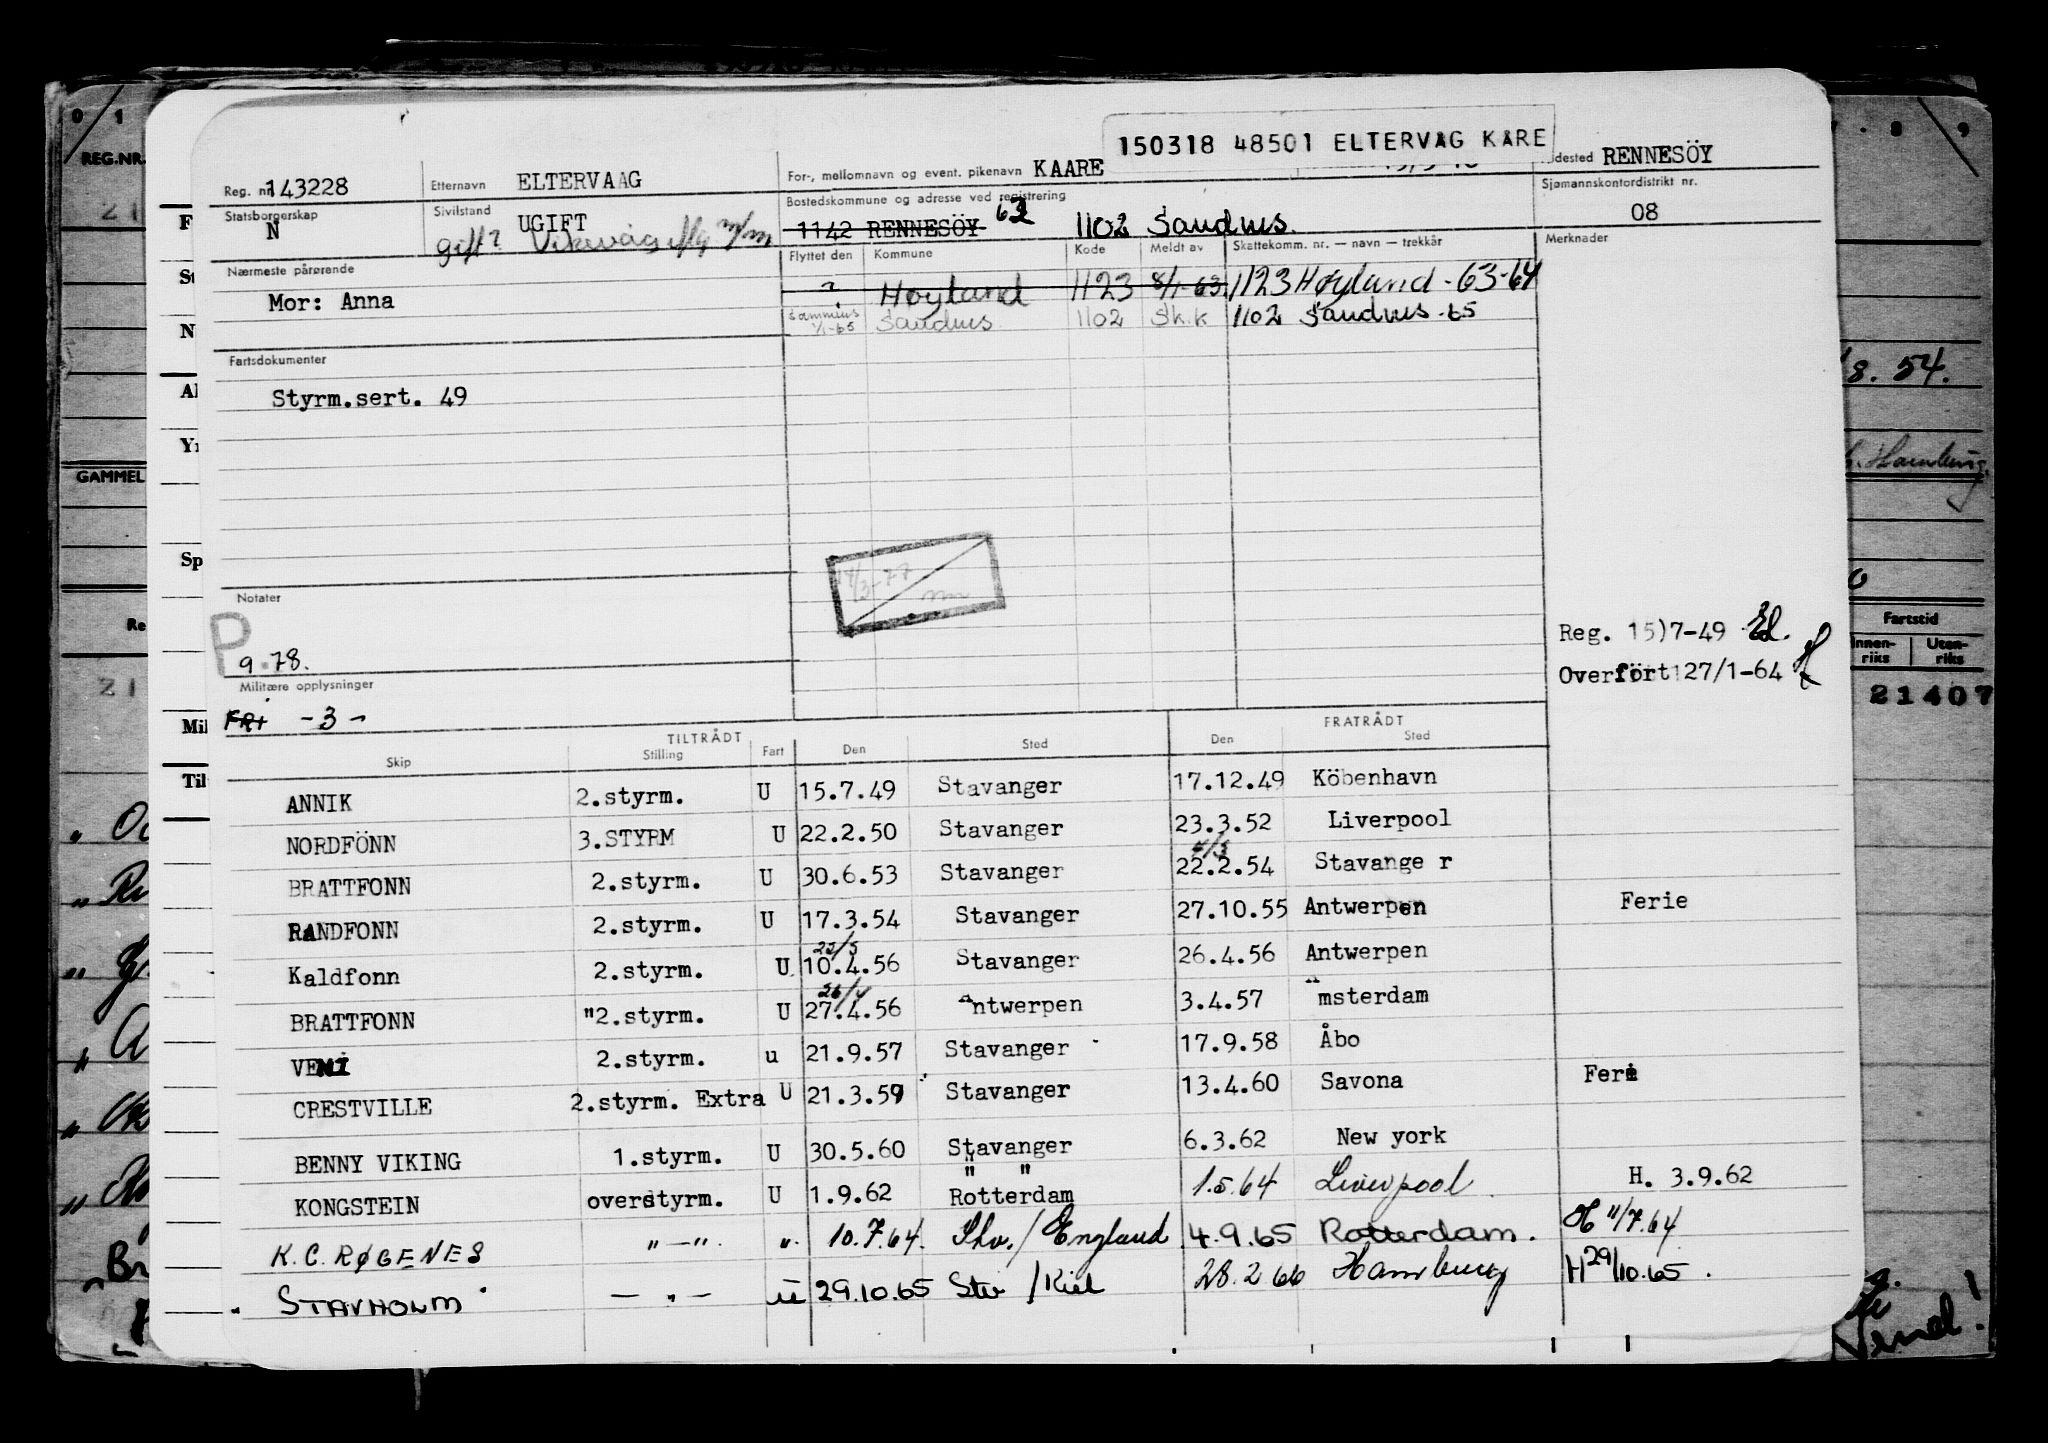 150318 48501 ELTERVAG KARE
Reg. nr. 143228 Etternavn ELTERVAAG For-, mellomnavn og event. pikenavn KAARE Fødested RENNESÖY
Statsborgerskap N Sivilstand UGIFT Bostedskommune og adresse ved registrering 1142 RENNESÖY 62 1102 Sandnes. Sjømannskontordistrikt nr. 08
gift? Vikevåg
Nærmeste pårørende Flyttet den Kommune Kode Meldt av Skattekomm. nr. — navn — trekkår Merknader
Mor: Anna ? Høyland 1123 8/1-63 1123 Høyland -63-64
1/1-65 Sandnes 1102 Sk.k 1102 Sandnes -65
Fartsdokumenter
Styrm.sert. 49
14/3-77
Notater
P
9.78.
Reg. 15)7-49
Overfört 27/1-64
Militære opplysninger
FRI -3-
TILTRÅDT FRATRÅDT
Skip Stilling Fart Den Sted Den Sted
ANNIK 2.styrm. U 15.7.49 Stavanger 17.12.49 Köbenhavn
NORDFÖNN 3.STYRM U 22.2.50 Stavanger 23.3.52 Liverpool
4/3
BRATTFONN 2.styrm. U 30.6.53 Stavanger 22.2.54 Stavange r
RANDFONN 2.styrm. U 17.3.54 Stavanger 27.10.55 Antwerpen Ferie
Kaldfonn 2.styrm. U. 10.4.56 Stavanger 26.4.56 Antwerpen
26/4
BRATTFONN "2.styrm. U 27.4.56 Antwerpen 3.4.57 Amsterdam
VEMI 2.styrm. u 21.9.57 Stavanger 17.9.58 Åbo
CRESTVILLE 2.styrm. Extra U 21.3.59 Stavanger 13.4.60 Savona Ferie
BENNY VIKING 1.styrm. U 30.5.60 Stavanger 6.3.62 New york
" "
KONGSTEIN overstyrm. U 1.9.62 Rotterdam 1.5.64 Liverpool H. 3.9.62
K.C. RØGENES "—". ". 10.7.64. Shv./England 4.9.65 Rotterdam. H 11/7.64
STAVHOLM — " — U 29.10.65 Stv /Kiel 28.2.66 Hamburg H 29/10.65.
REG.NR.
GAMMEL
8. 54.
Hamburg.
Fartstid
Innen-riks Uten-riks
21407